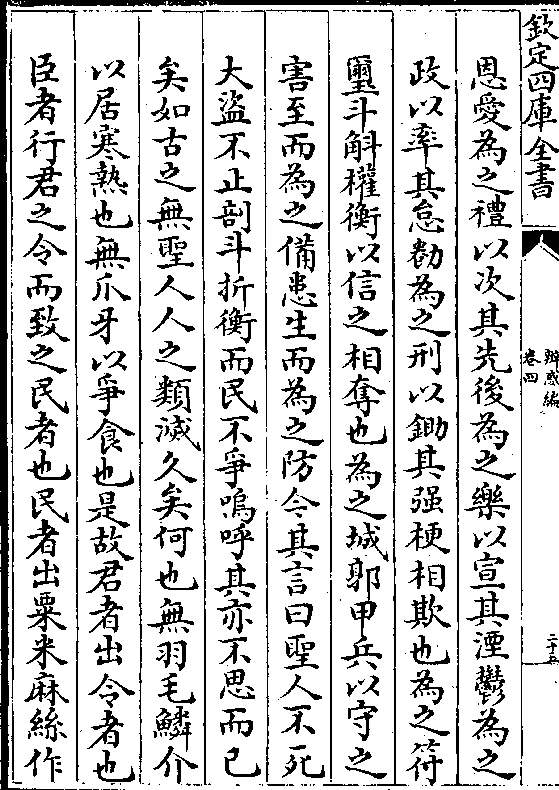 欽定四庫全書
辯惑編
卷四
二十五
恩愛為之禮以次其先後為之樂以宣其湮鬱為之
政以率其怠勌為之刑以鋤其强梗相欺也為之符
璽斗斛權衡以信之相奪也為之城郭甲兵以守之
害至而為之備患生而為之防今其言曰聖人不死
大盜不止剖斗折衡而民不爭嗚呼其亦不思而已
矣如古之無聖人人之類滅久矣何也無羽毛鱗介
以居寒熱也無爪牙以爭食也是故君者出令者也
臣者行君之令而致之民者也民者出粟米麻絲作